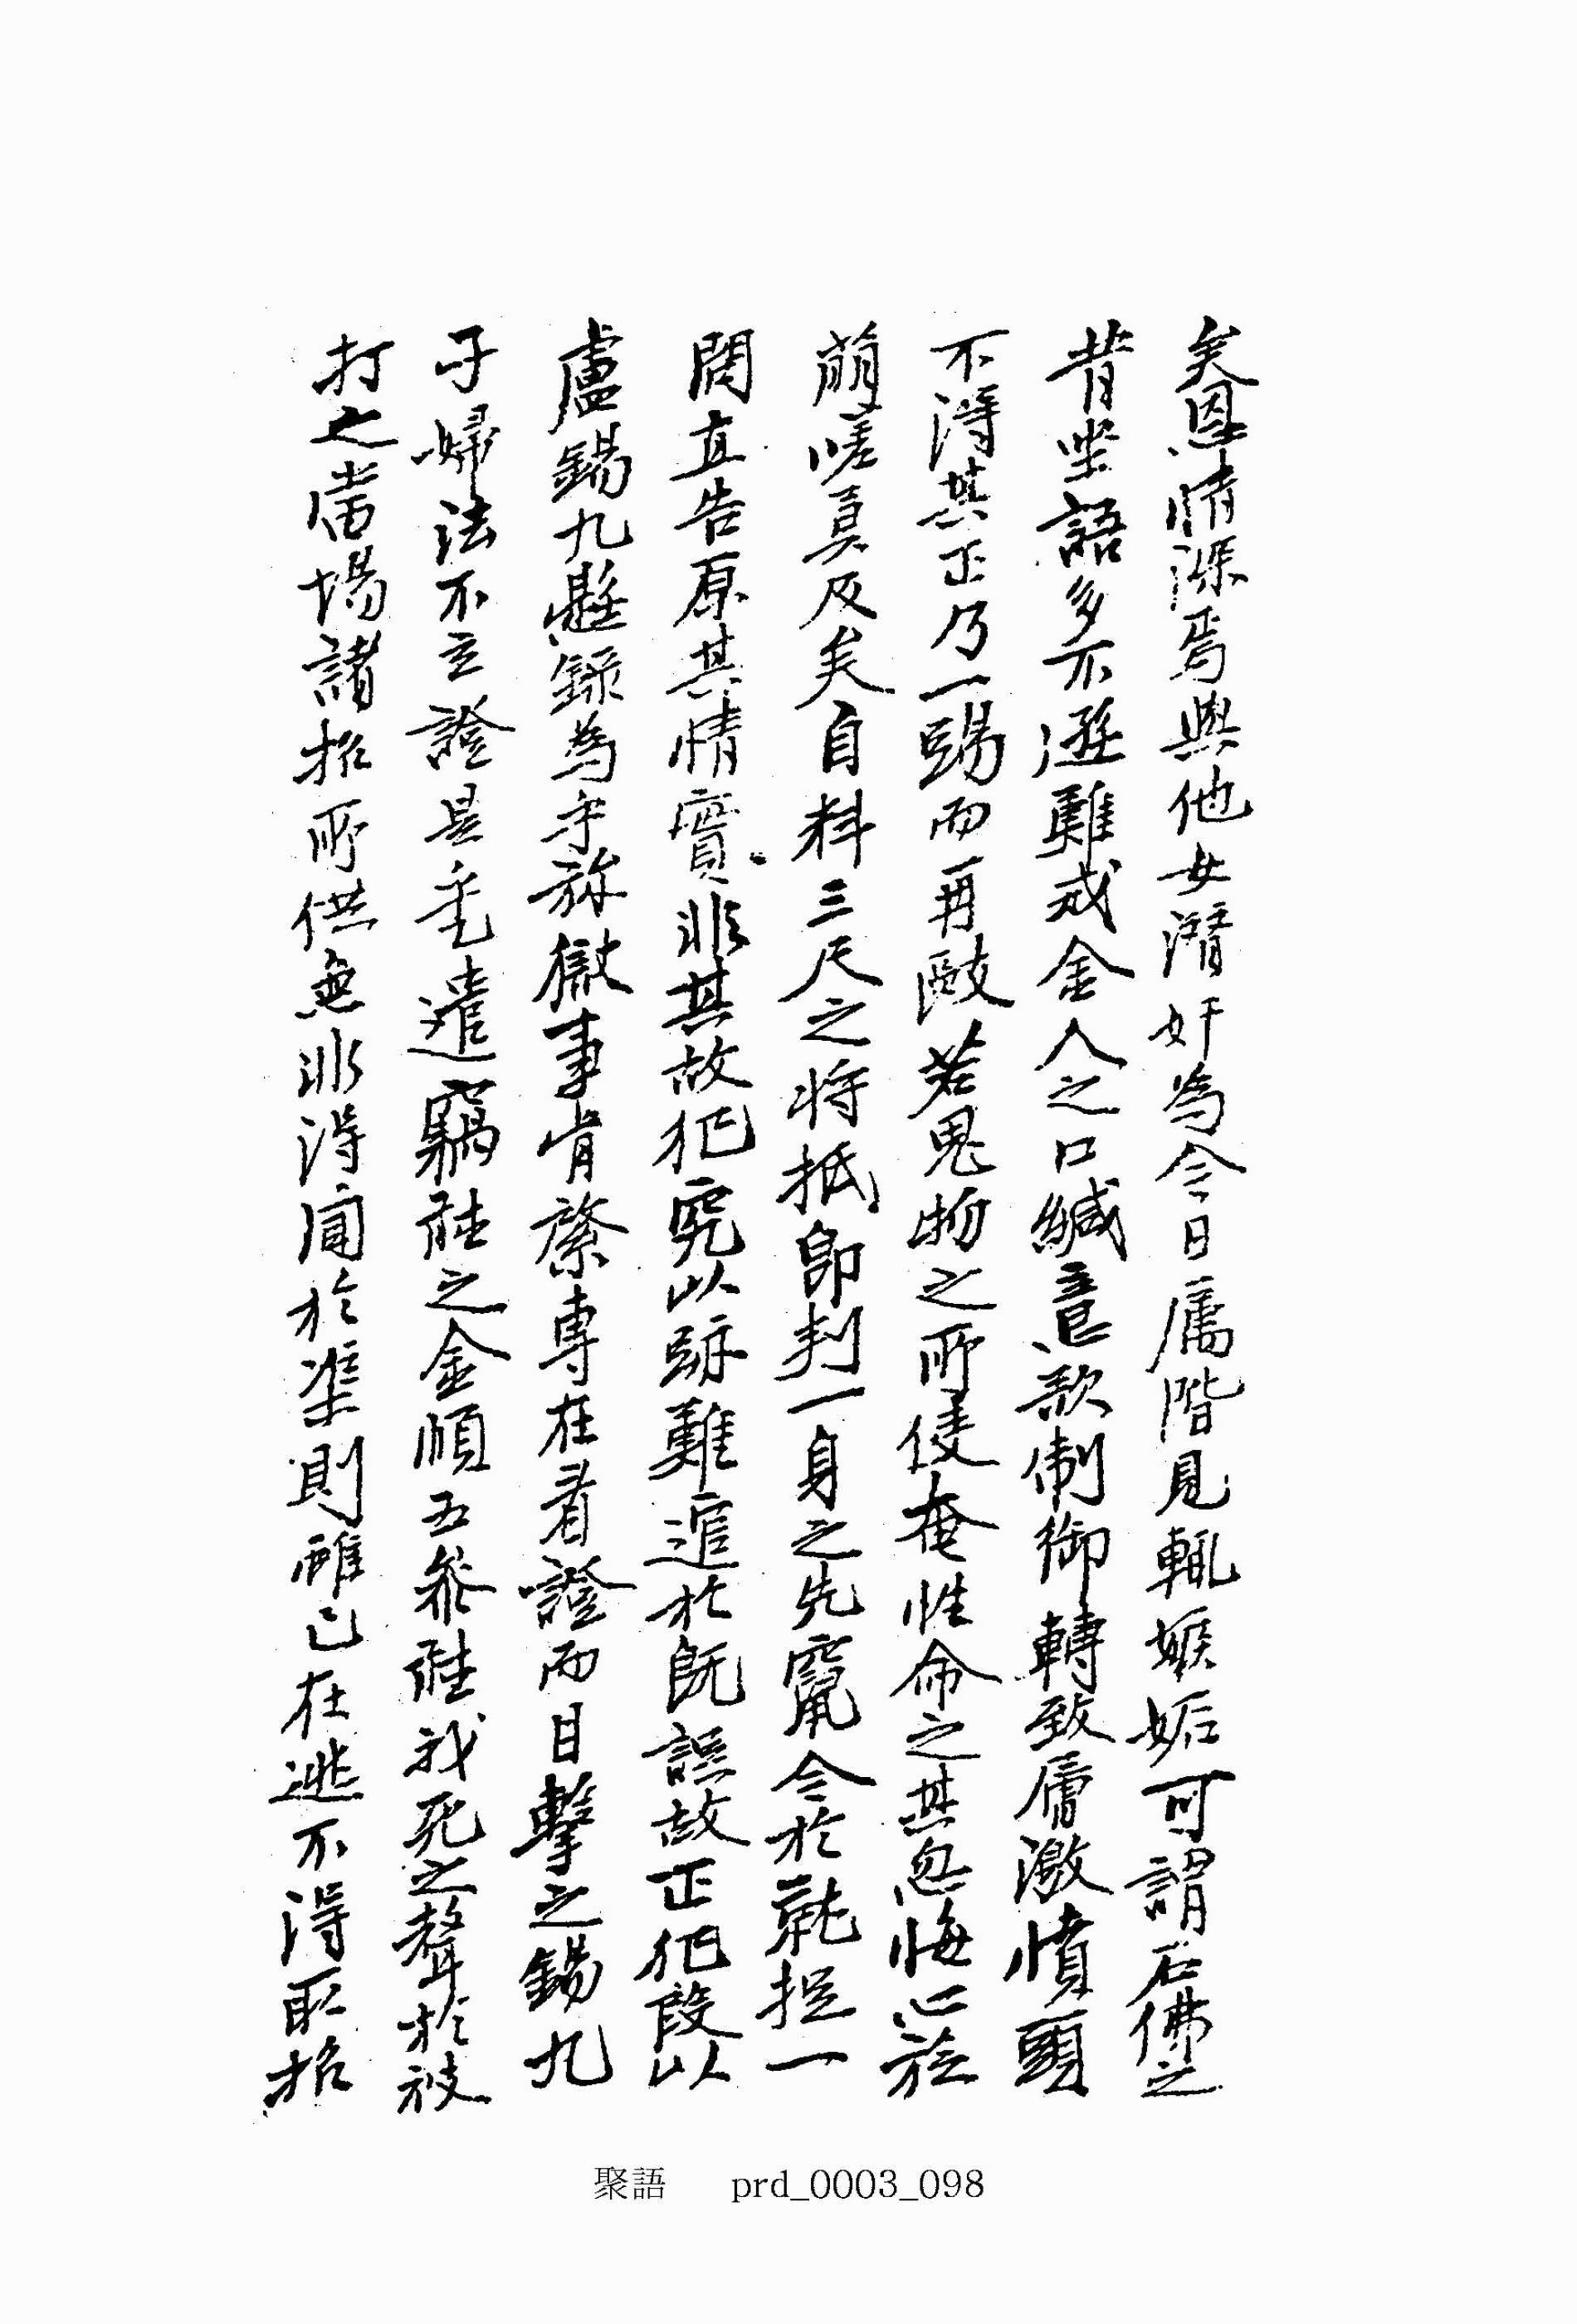 矣恩情深焉與他女潛奸為今日厲階見輒嫉妬可謂石佛之
背坐語多不遜難戒金人之口緘意欲制御轉致層激憤頭
不得其正乃一踢而再敺若鬼物之所使奄性命之其忽悔心旋
萌嗟莫及矣自料三尺之將抵卽判一身之先竄今於就捉一
問直告原其情實非其故犯究以跡難逭於旣誤故正犯段以
盧錫九懸錄為乎旀獄事肯綮專在看證而目擊之錫九
子婦法不立證是乎遣竊聽之金順五參聽我死之聲於被
打之當場諸招所供無非得聞於渠則雖已在逃不得取招